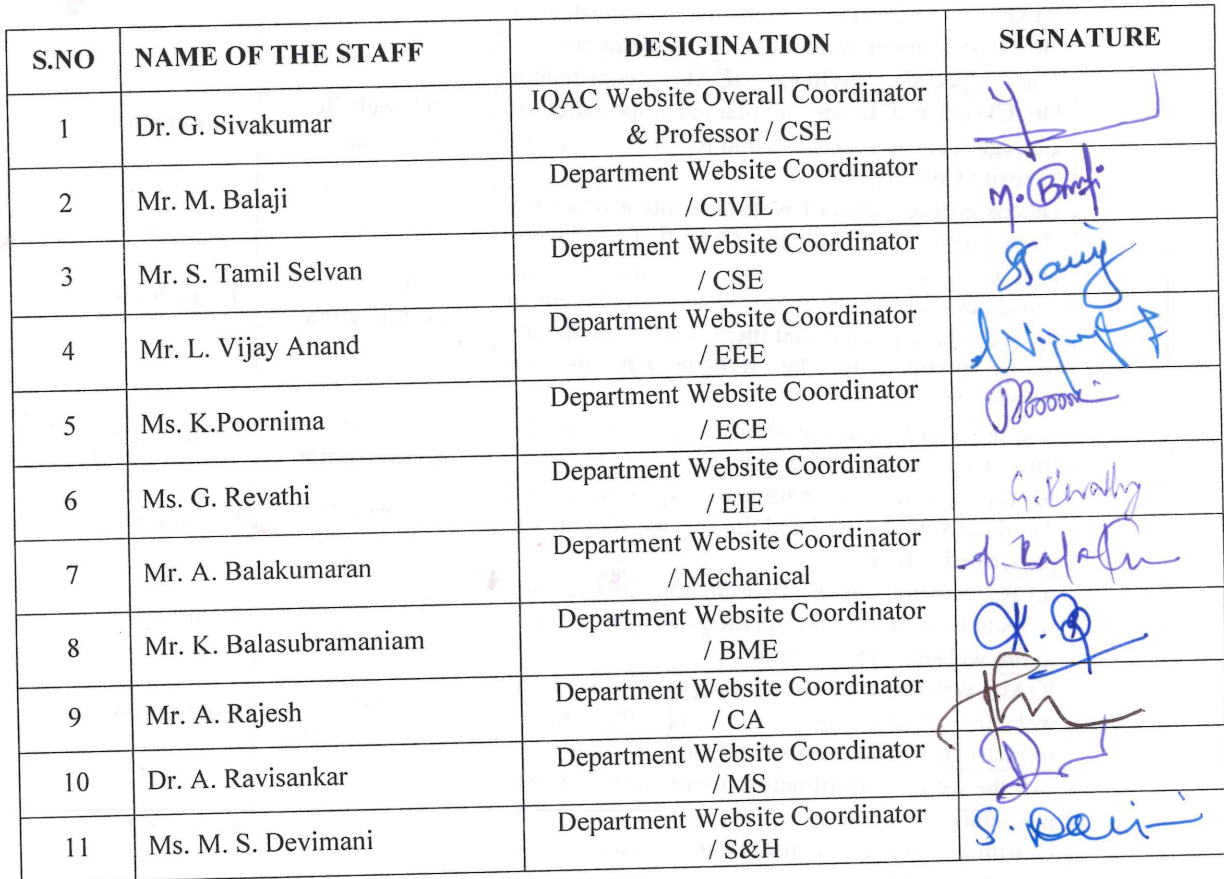 S.NO NAME OF THE STAFF DESIGINATION SIGNATURE
1 Dr. G. Sivakumar IQAC Website Overall Coordinator
& Professor / CSE
2 Mr. M. Balaji Department Website Coordinator
/ CIVIL M. Balaji
3 Mr. S. Tamil Selvan Department Website Coordinator
/ CSE
4 Mr. L. Vijay Anand Department Website Coordinator
/ EEE
5 Ms. K.Poornima Department Website Coordinator
/ ECE
6 Ms. G. Revathi Department Website Coordinator
/ EIE G. Revathy
7 Mr. A. Balakumaran Department Website Coordinator
/ Mechanical
8 Mr. K. Balasubramaniam Department Website Coordinator
/ BME
9 Mr. A. Rajesh Department Website Coordinator
/ CA
10 Dr. A. Ravisankar Department Website Coordinator
/ MS
11 Ms. M. S. Devimani Department Website Coordinator
/ S&H